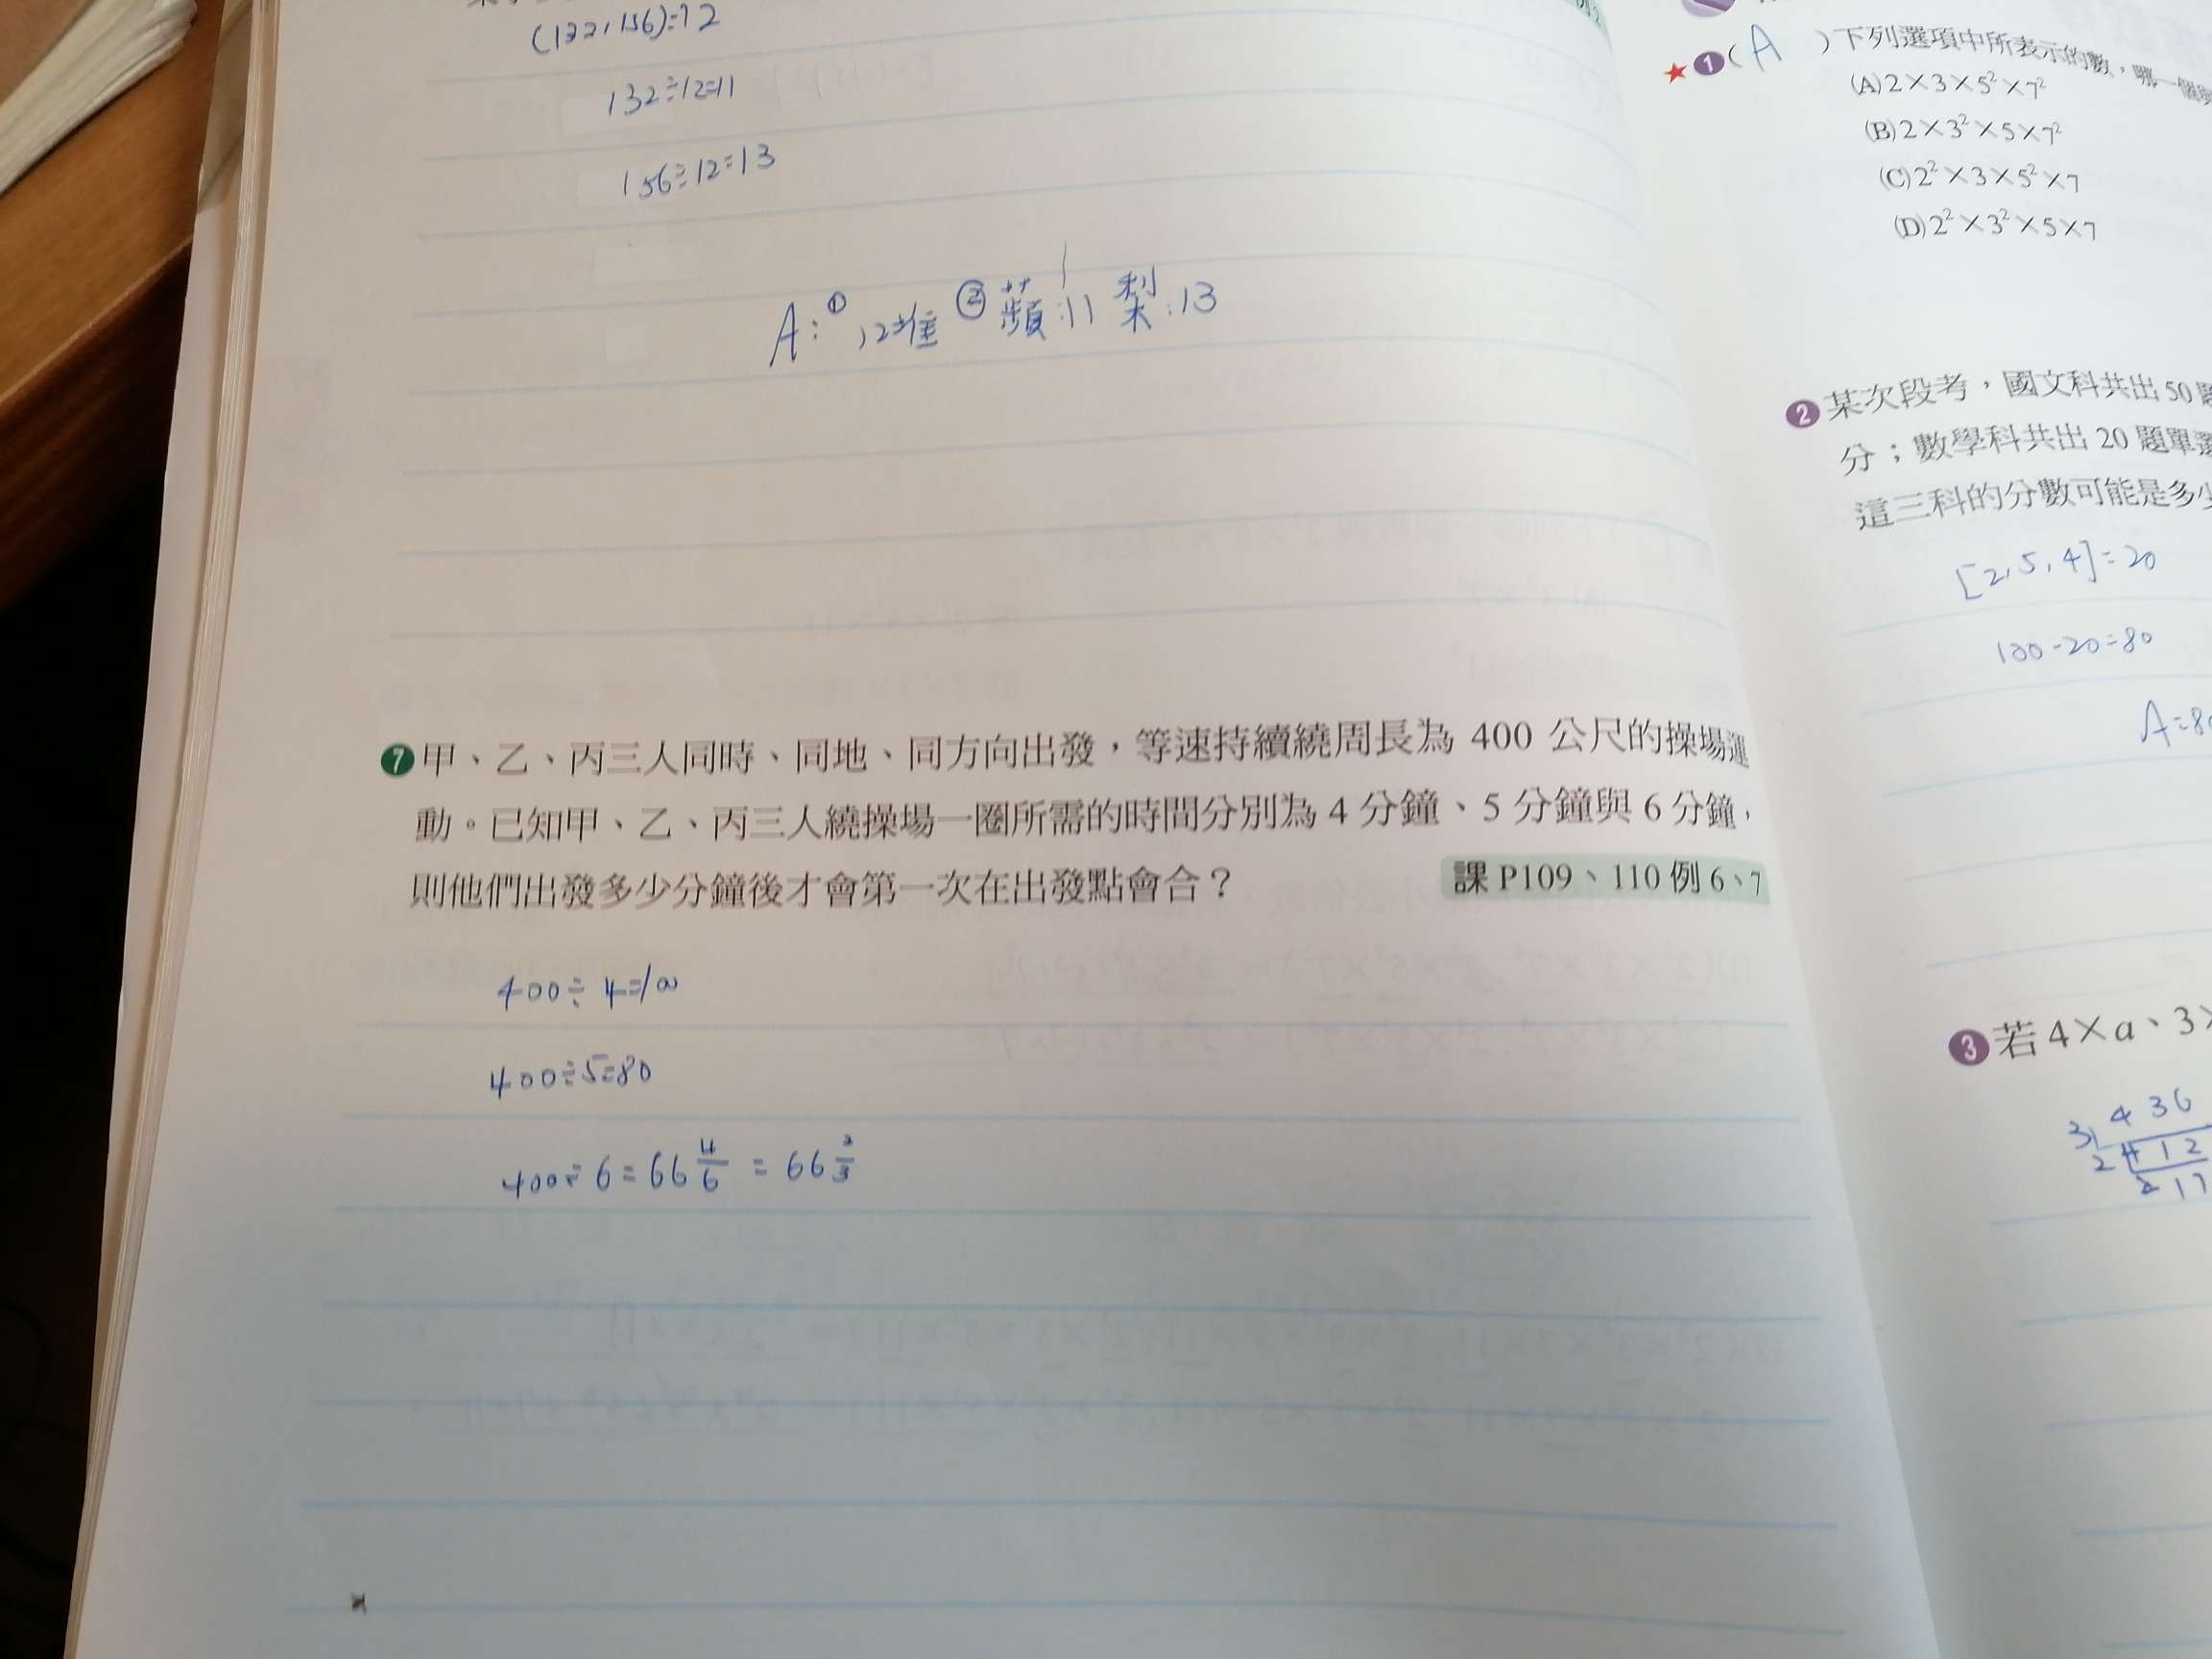 (132,156)=12
132÷12=11
156÷12=13
A:① 12堆 ②蘋:11 梨:13
❼甲、乙、丙三人同時、同地、同方向出發，等速持續繞周長為 400 公尺的操場運
動。已知甲、乙、丙三人繞操場一圈所需的時間分別為 4 分鐘、5 分鐘與 6 分鐘，
則他們出發多少分鐘後才會第一次在出發點會合？
課 P109、110 例 6、7
400÷4=100
400÷5=80
400÷6=66 4/6 = 66 2/3
★❶( A )下列選項中所表示的數，哪一個
(A) 2×3×5²×7²
(B) 2×3²×5×7²
(C) 2²×3×5²×7
(D) 2²×3²×5×7
❷某次段考，國文科共出 50 題
分；數學科共出 20 題單選
這三科的分數可能是多少
[2,5,4]=20
100-20=80
A=80
❸若 4×a、3×
3 4 36
2 4 12
2 17